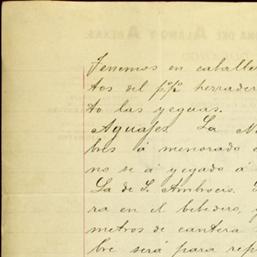 Tenemos en caballe
tos del p%2 herrader
to las yeguas.
Aguajes. La M
bres á menorado
no se á yegado á
La de S. Ambrocio.
ra en el bebedero,
metros de cantera
bre será para rep